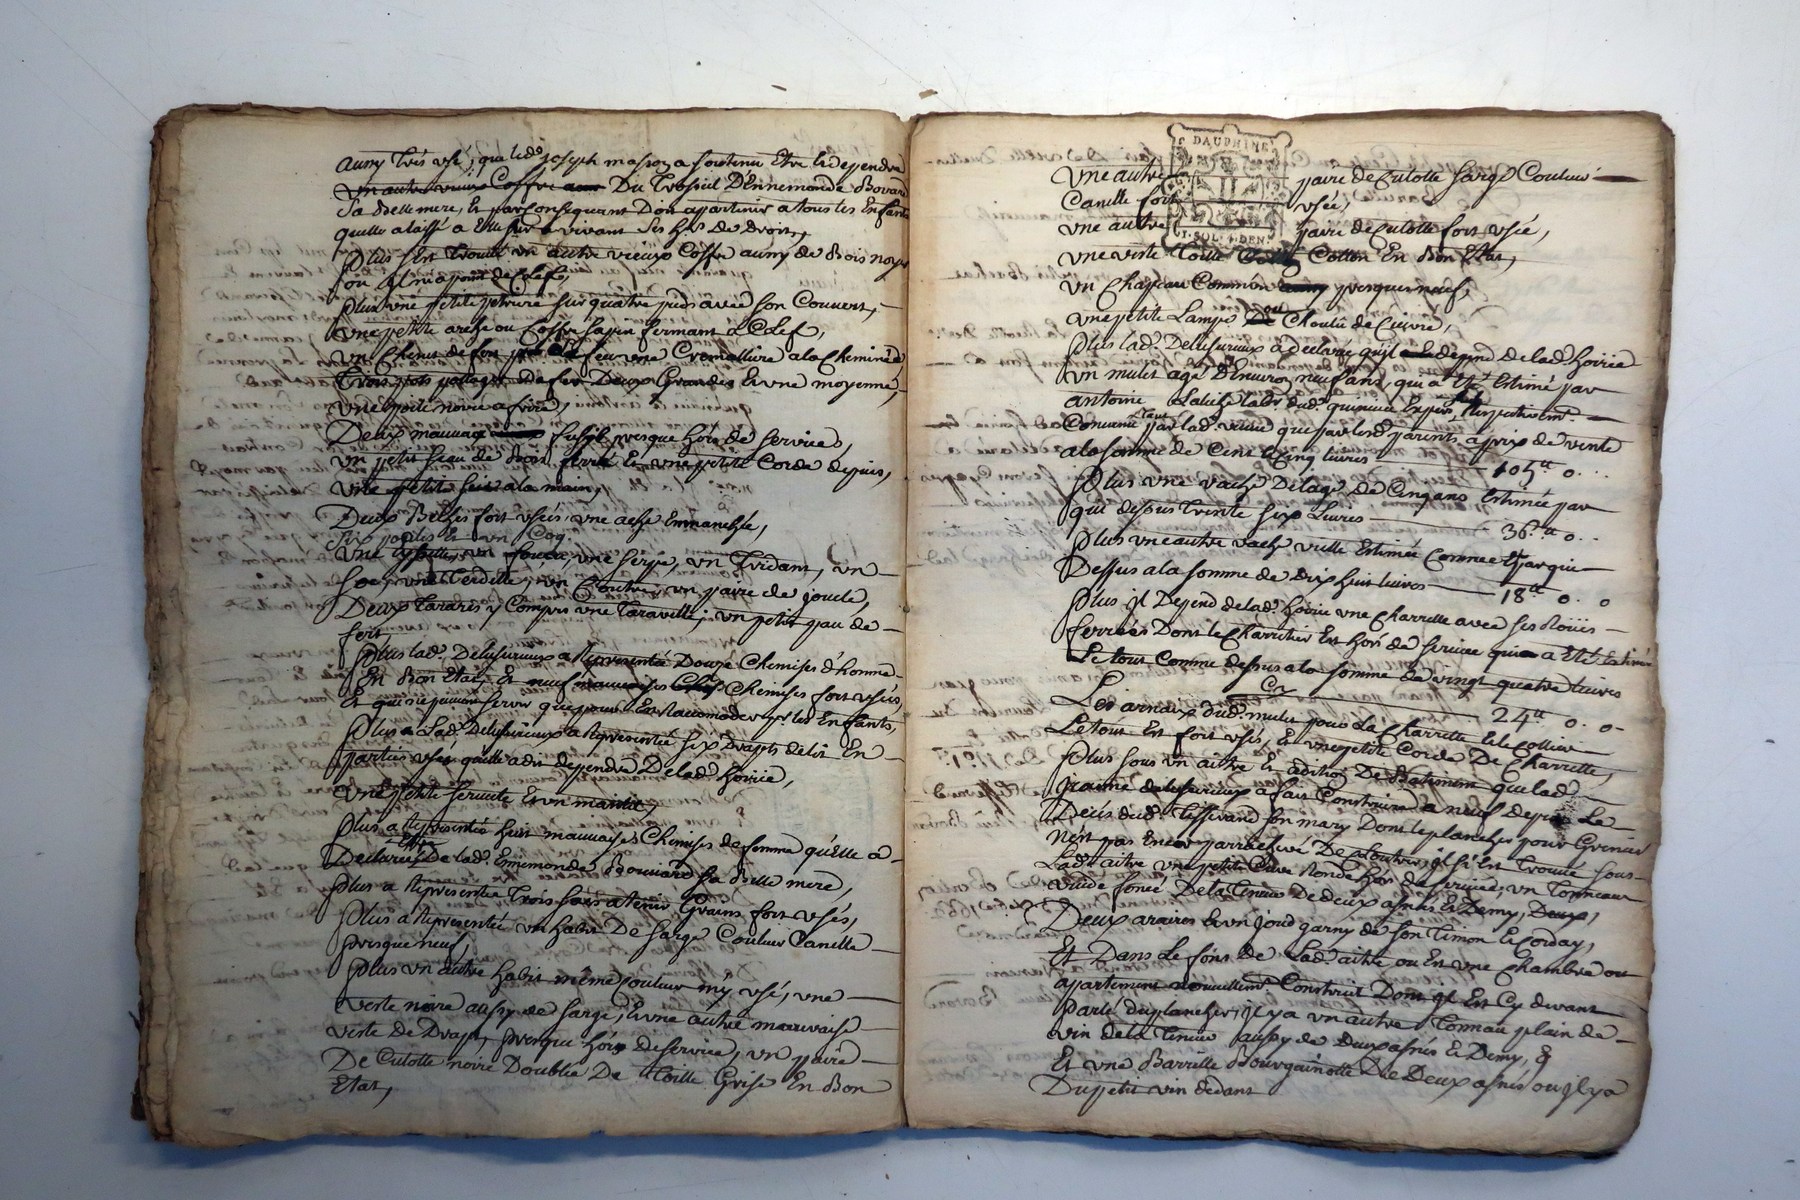 aussy très usé, que led. joseph masson a soutenu être et dependre
un autre vieux Coffre Du Trossel D'Ennemonde Bovard
Sa Belle mere, Et par Consequant Doit appartenir a tous les Enfants
quelle a laissé a Elle survivant Ses h.rs de droit,
Plus s'est trouvé un autre vieux Coffre aussy de Bois noyer
ou il n'i a point de Clef,
Plus une petite petriere sur quatre pieds avec son Couvert,
une petite arche ou Coffre sapin fermant a Clef,
un Chenet de fer feu une Cremalliere a la Cheminée
Trois pots potager de fer Deux Grandes Et une moyenne,
une poile noire a frire,
Deux mauvais fusils presque hors de service,
un petit seau de Bois ferré Et une petite Corde de puis,
une petite scie a la main,
Deux Beches fort usés, une ache Emmanchée,
Six poules Et un Coq.
une un une serpe, un Tridant, un
une un Coutre, un paire de joucle,
Deux Tarares y Compris une Taravelle, un petit pau de
fert,
Plus lad. Delisurieux a Representé Douze Chemises d'homme
En Bon Etat, Et neuf mauvaises Chemises fort usés,
Et qui ne peuvent servir que pour Les Racomoder p.r les Enfants,
Plus a Lad. Delisurieux a Representé six Draps de lit En
parties usés quelle a dit dependre De lad. hoirie,
une petite serviete Et un
Plus a Representé huit mauvaises Chemises de femme qu'Elle a
Declarés Etre De lad. Ennemonde Bovard Sa Belle mere,
Plus a Representé Trois sacs a tenir Grains fort usés,
Plus a Representé un habit De sarge Couleur Canelle
presque neuf,
Plus un autre habit même Couleur my usé, une
veste noire aussy de sarge, Et une autre mauvaise
veste De Drapt, presque hors de service, un paire
De Culotte noire Doublée De Toille Grise En Bon
Etat,
DAUPHINE
1. SOL. 4. DEN.
une autre paire de Culotte sarge Couleur
Canelle fort usée,
une autre paire de Culotte fort usée,
une veste Toille Cotton En Bon Etat,
un Chapeau Commun presque neuf,
une petite Lampe ou Chouleu de Cuivre,
Plus lad. Delisurieux a declaré qu'il depend de lad. hoirie
un mulet agé D'Environ neuf ans, qui a Eté Estimé par
antoine lab.r dud. quincieu respectivem.t
Convenu Tant par lad. veuve que par lesd. parents a prix de vente
a la somme de Cent Cinq livres 105.tt 0..
Plus une vache De l'age de Cinq ans Estimée par
qui dessus Trente six Livres 36.tt 0..
Plus une autre vache vielle Estimée Comme Et par qui
Dessus a la somme de dix huit livres 18.tt 0. 0
Plus il Depend de lad. hoirie une Charrette avec ses Roües
ferrées Dont le Charretier Est hors de service qui a Eté Estimée
Le tout Comme dessus a la somme de vingt quatre livres
Cy 24.tt 0. 0
Les arnaix dud. mulet pour La Charrette Et le Collier
Le tout Est fort usés, Et une petite Corde De Charrette,
Plus sous un aitre Et adition De Batiment que lad.
Delisurieux a fait Construire a neuf depuis Le
Decés dud. Teisserand son mary Dont le plancher pour Grenier
n'est pas Encor parrachevé De Poutres, il s'est Trouvé sous
Lad. aitre une petite Cuve Ronde hors de service, un Tonneau
vuide foncé De la Tenue De deux asnés Et Demy, Deux,
Deux araires Et un joug garny de son Timon Et Corday,
Et Dans Le fons de Lad. aitre ou Est une Chambre ou
appartement nouvellem.t Construit Dont il Est Cy devant
Parlé Du plancher, il y a un autre Tonneau plain de
vin de la Tenue aussy de deux asnés Et Demy, Et
Et une Barrille Bourguinotte De Deux asnés ou il y a
Du petit vin dedans